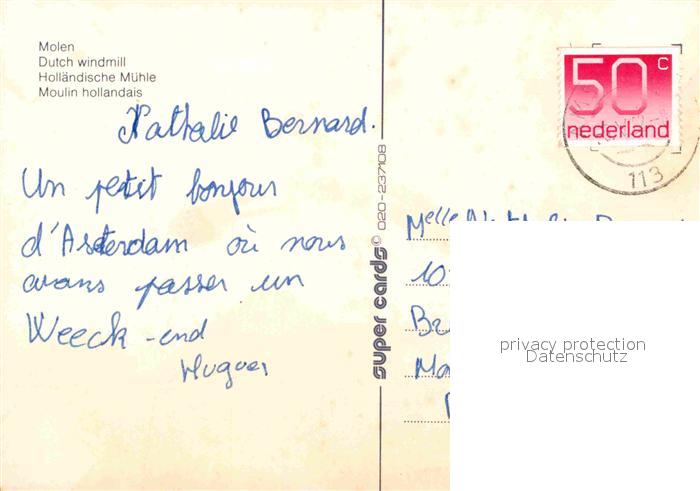 Molen
Dutch windmill
Holländische Mühle
Moulin hollandais
Nathalie Bernard.
Un petit bonjour
d'Asterdam où nous
avons passer un
Weeck-end
Hugues
super cards © 020-237108
50 c
nederland
113
Melle
privacy protection
Datenschutz